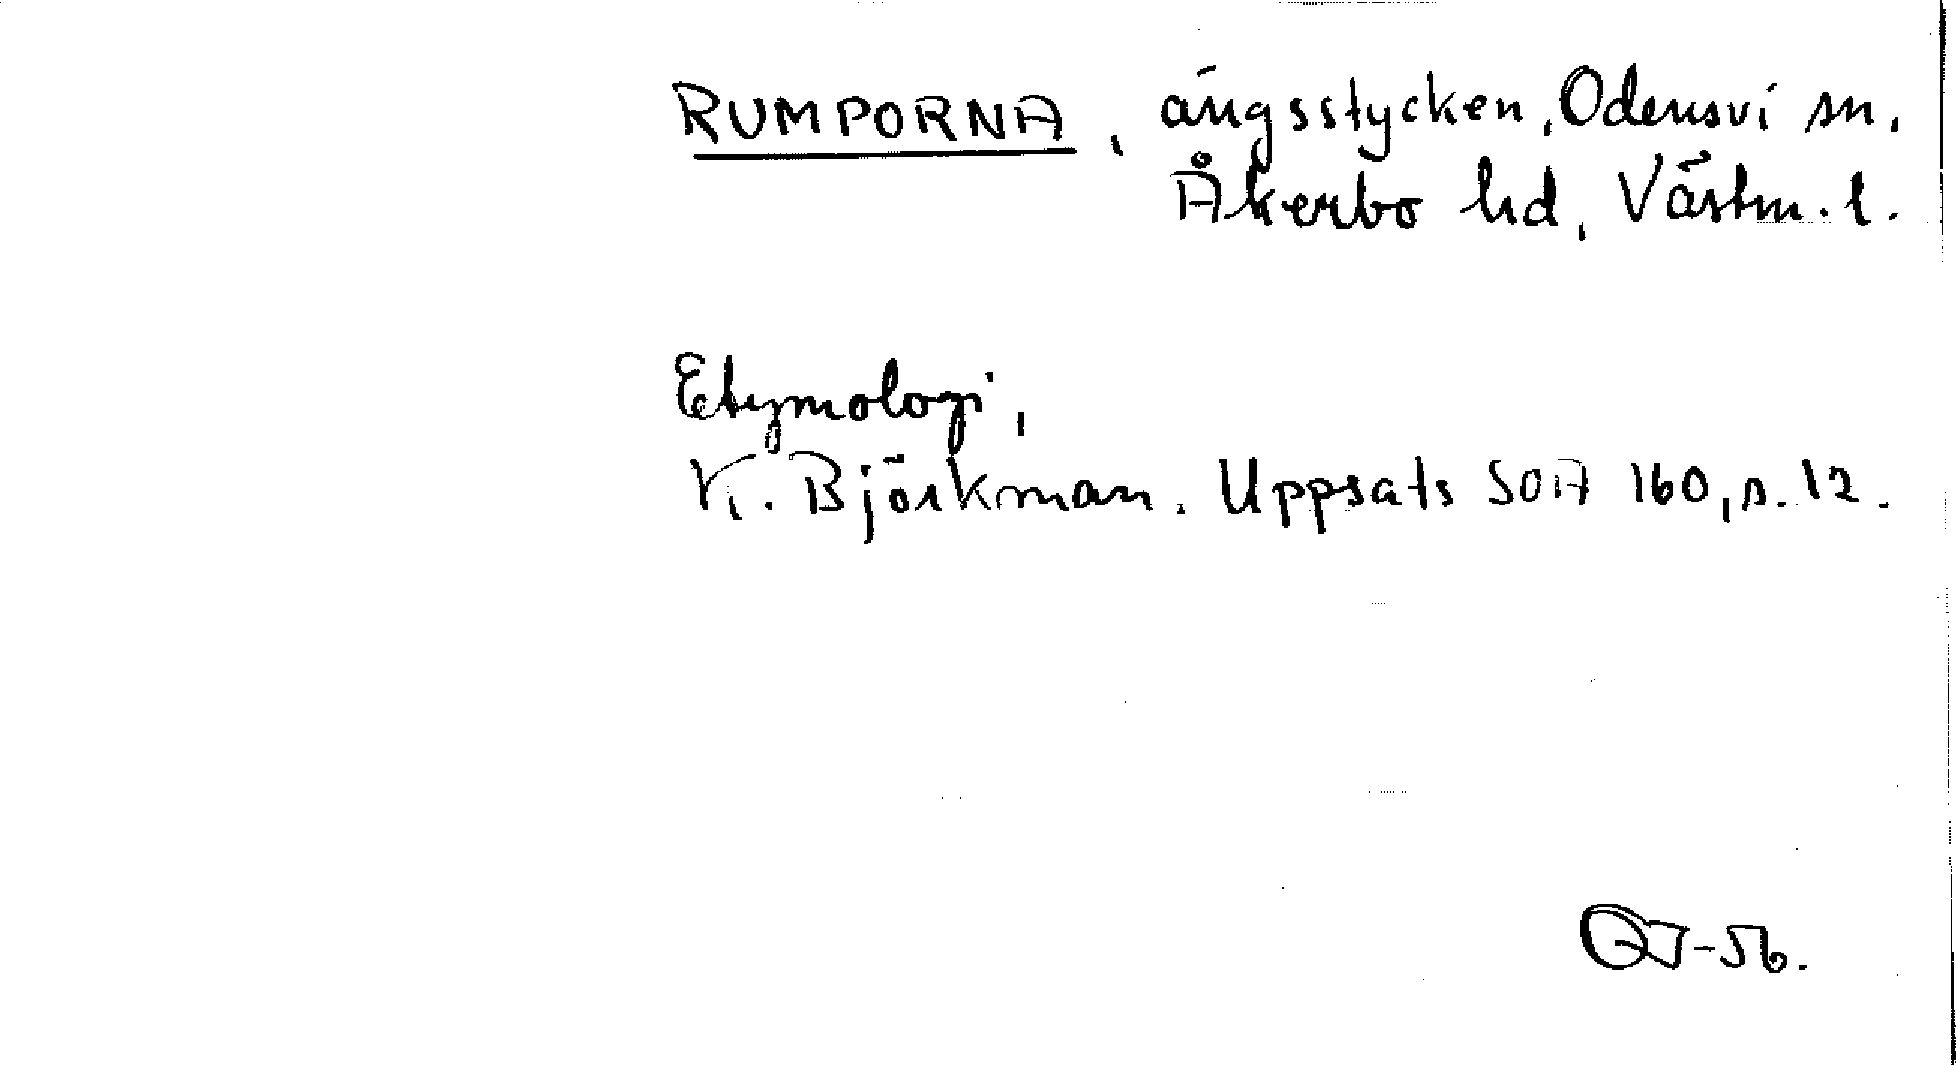 RUMPORNA, ängsstycken, Odensvi sn,
Åkerbo hd, Västm. l.
Etymologi,
K. Björkman. Uppsats SOA 160, s. 12.
-56.